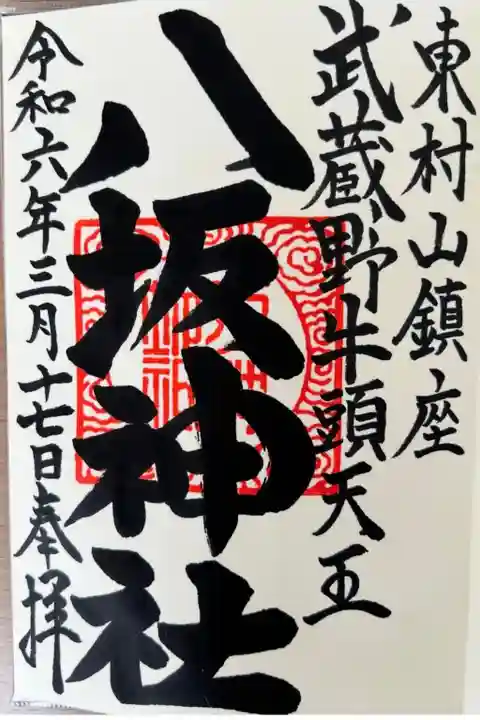 東村山鎮座
武蔵野牛頭天王
八坂神社
令和六年三月十七日奉拝